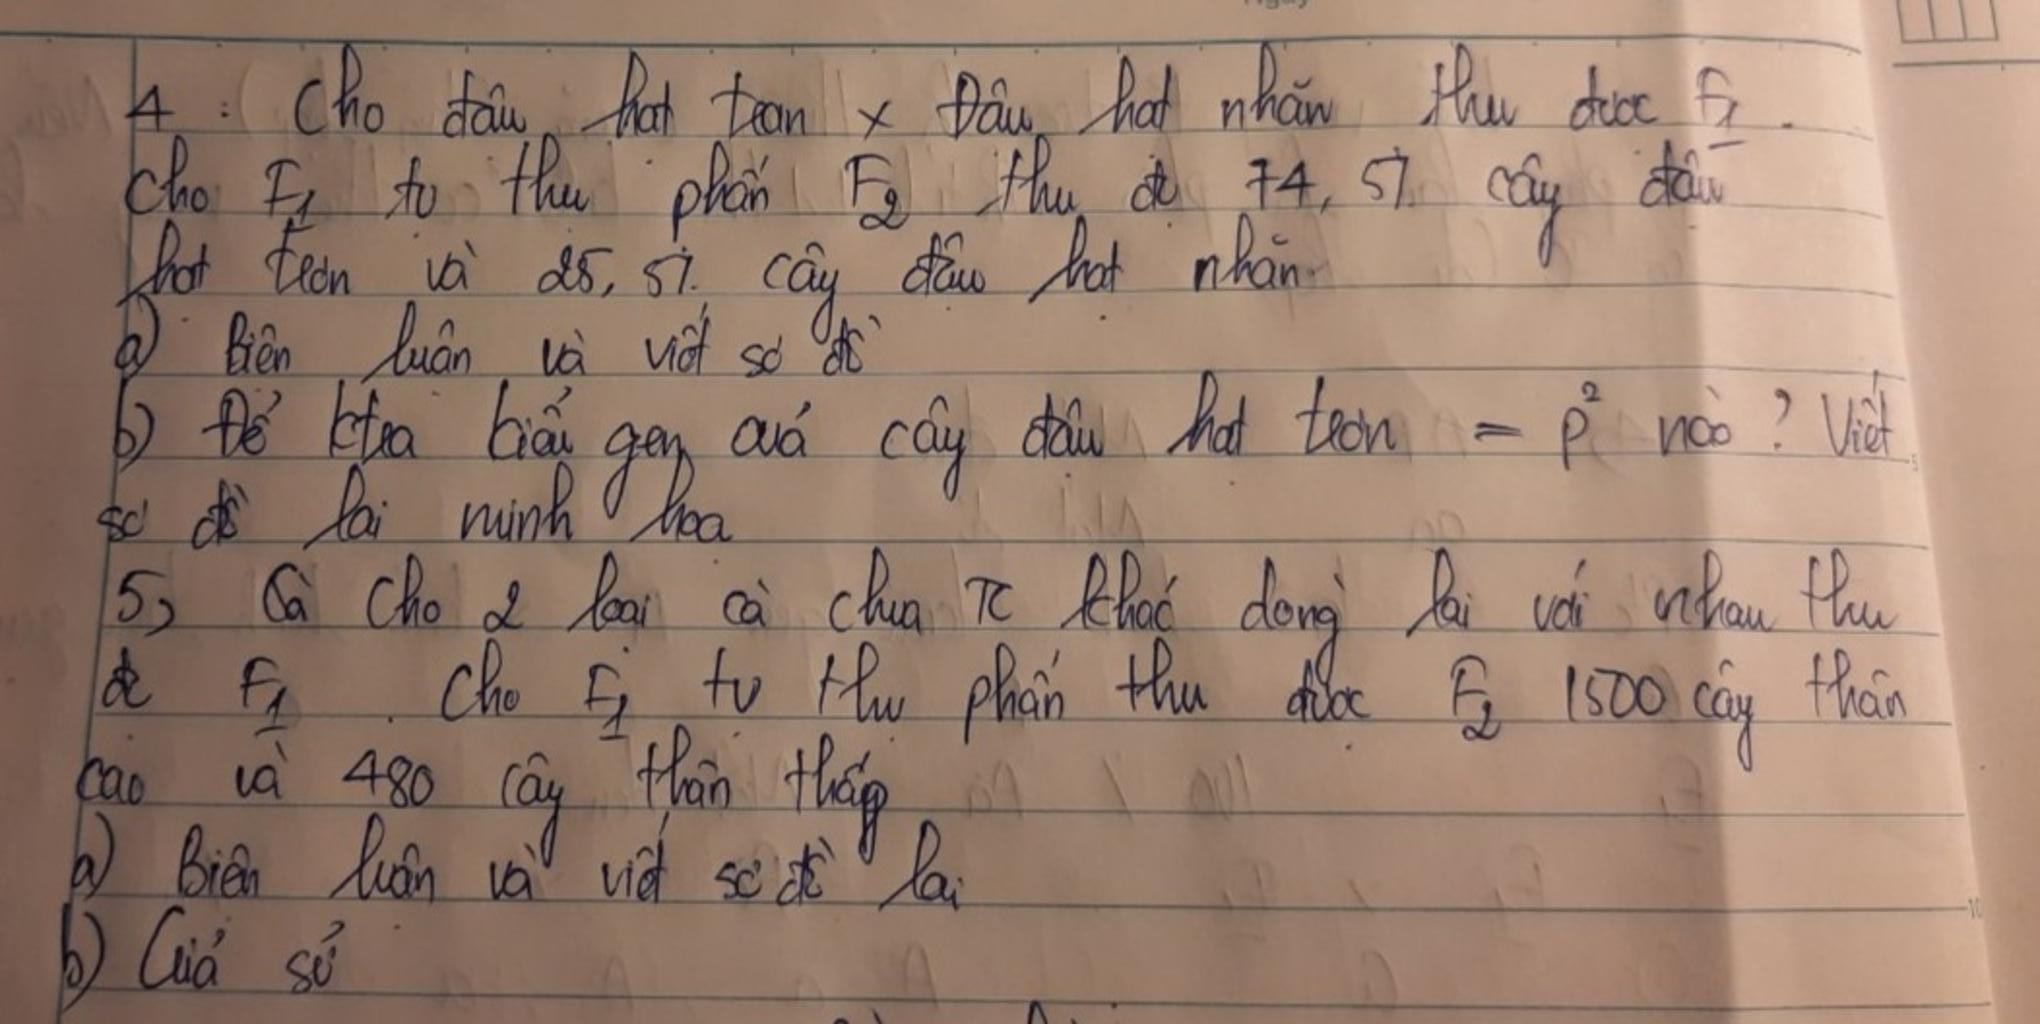 4 : Cho đâu hat trơn x Đâu hat nhăn thu được F1.
Cho F1 tự thụ phấn F2 thu đc 74,5% cây đâu
hat trơn và 25,5% cây đâu hat nhăn.
a) Biên luân và viết sơ đồ
b) Để ktra kiểu gen quả cây đâu hat trơn = p² nào? Viết
sơ đồ lai minh hoa
5, Cà Cho 2 loai cà chua TC khác dòng lai với nhau thu
đc F1. Cho F1 tự thụ phấn thu được F2 1500 cây thân
cao và 480 cây thân thấp
a) Biên luân và viết sơ đồ lai
b) Giả sử